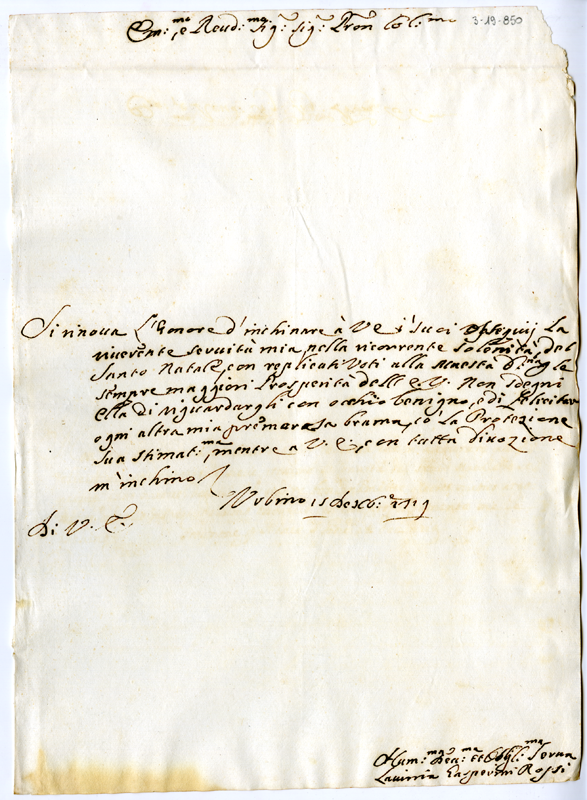 3-19-850
Em:mo e Reud:mo Sig:r Sig:r Pron Col:mo
Si rinoua L'honore d'inchinare à V E i suoi ossequij La
riuerente seruitù mia nella ricorrente solonità del
Santo Natale, con replicati voti alla Maestà d:
sempre maggiori Prosperità dell E V. Non sdegni
ella di riguardargli con occhio benigno, e di felicitar
ogni altra mia premurosa brama, cò la Protezione
sua stimat:ma, mentre a V. E. con tutta diuozione
m'inchino
Vrbino 15 Dexb:e
Di V. E.
Hum:ma Deu:ma et Obgl:ma Serua
Lauinia Gasperini Rossi